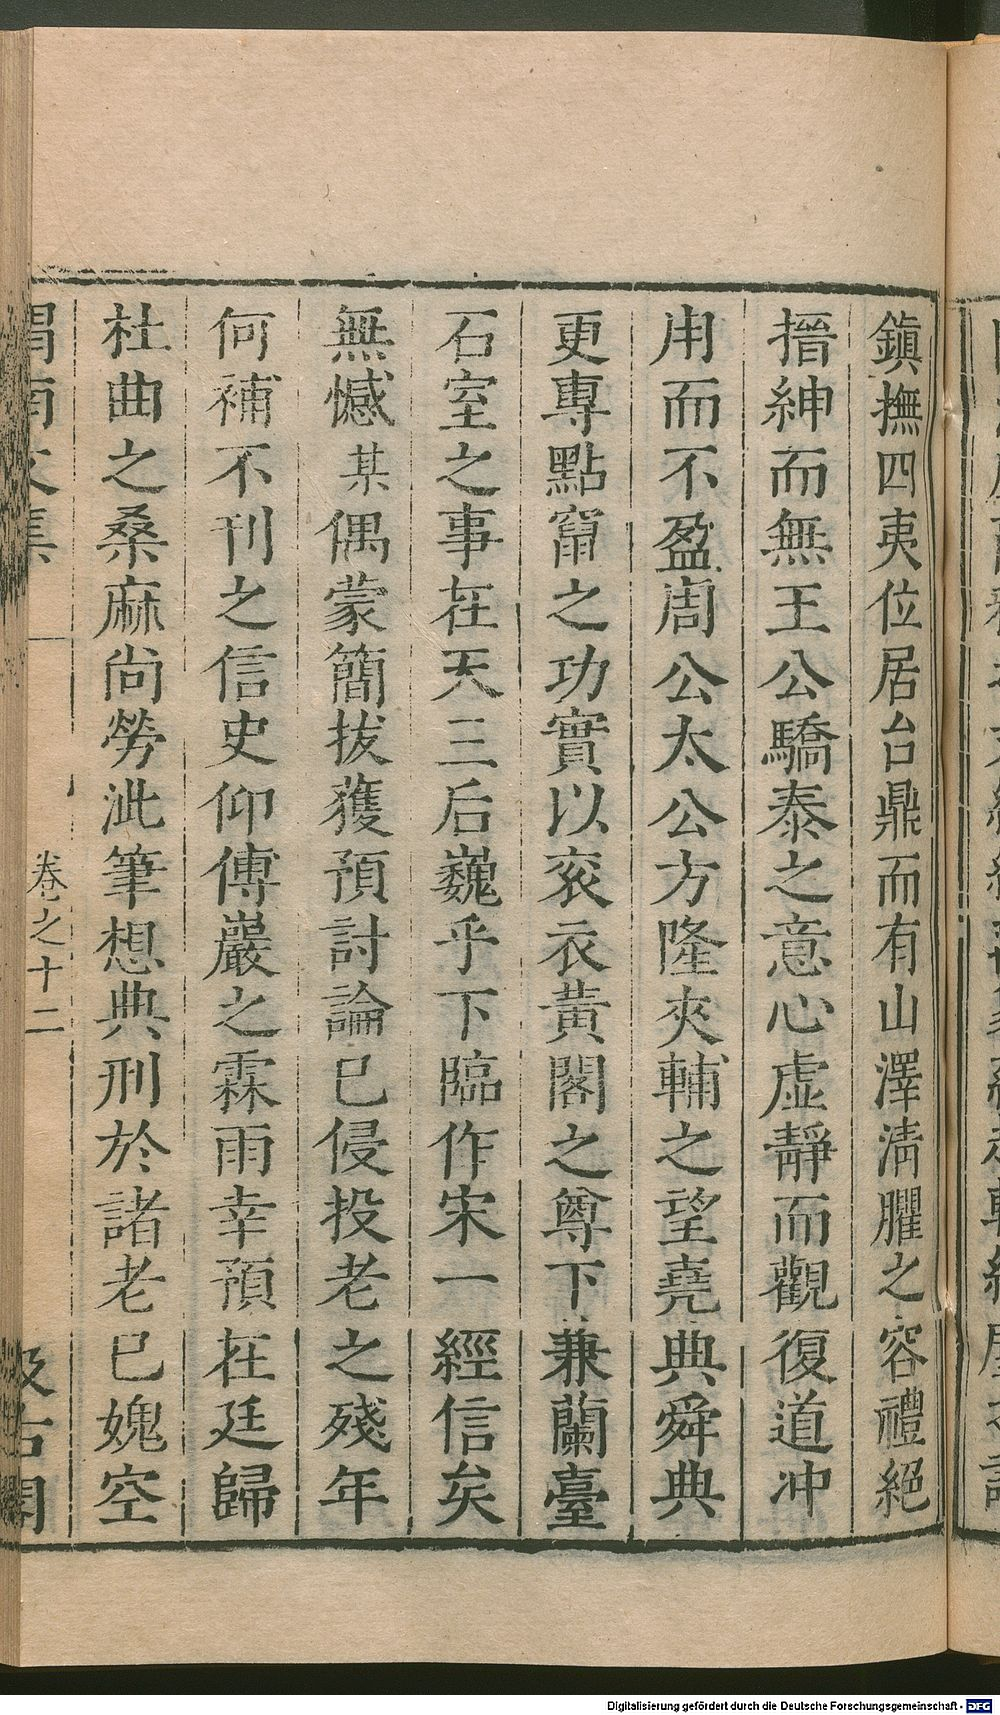 鎮撫四夷位居台鼎而有山澤清臞之容禮絕
搢紳而無王公驕泰之意心虛靜而觀復道冲
用而不盈周公太公方隆夾輔之望堯典舜典
更專點竄之功實以衮衣黃閣之尊下兼蘭臺
石室之事在天三后巍乎下臨作宋一經信矣
無憾某偶蒙簡拔獲預討論已侵投老之殘年
何補不刊之信史仰傅巖之霖雨幸預在廷歸
杜曲之桑麻尚勞泚筆想典刑於諸老已媿空
渭南文集
卷之十二
汲古閣
Digitalisierung gefördert durch die Deutsche Forschungsgemeinschaft - DFG